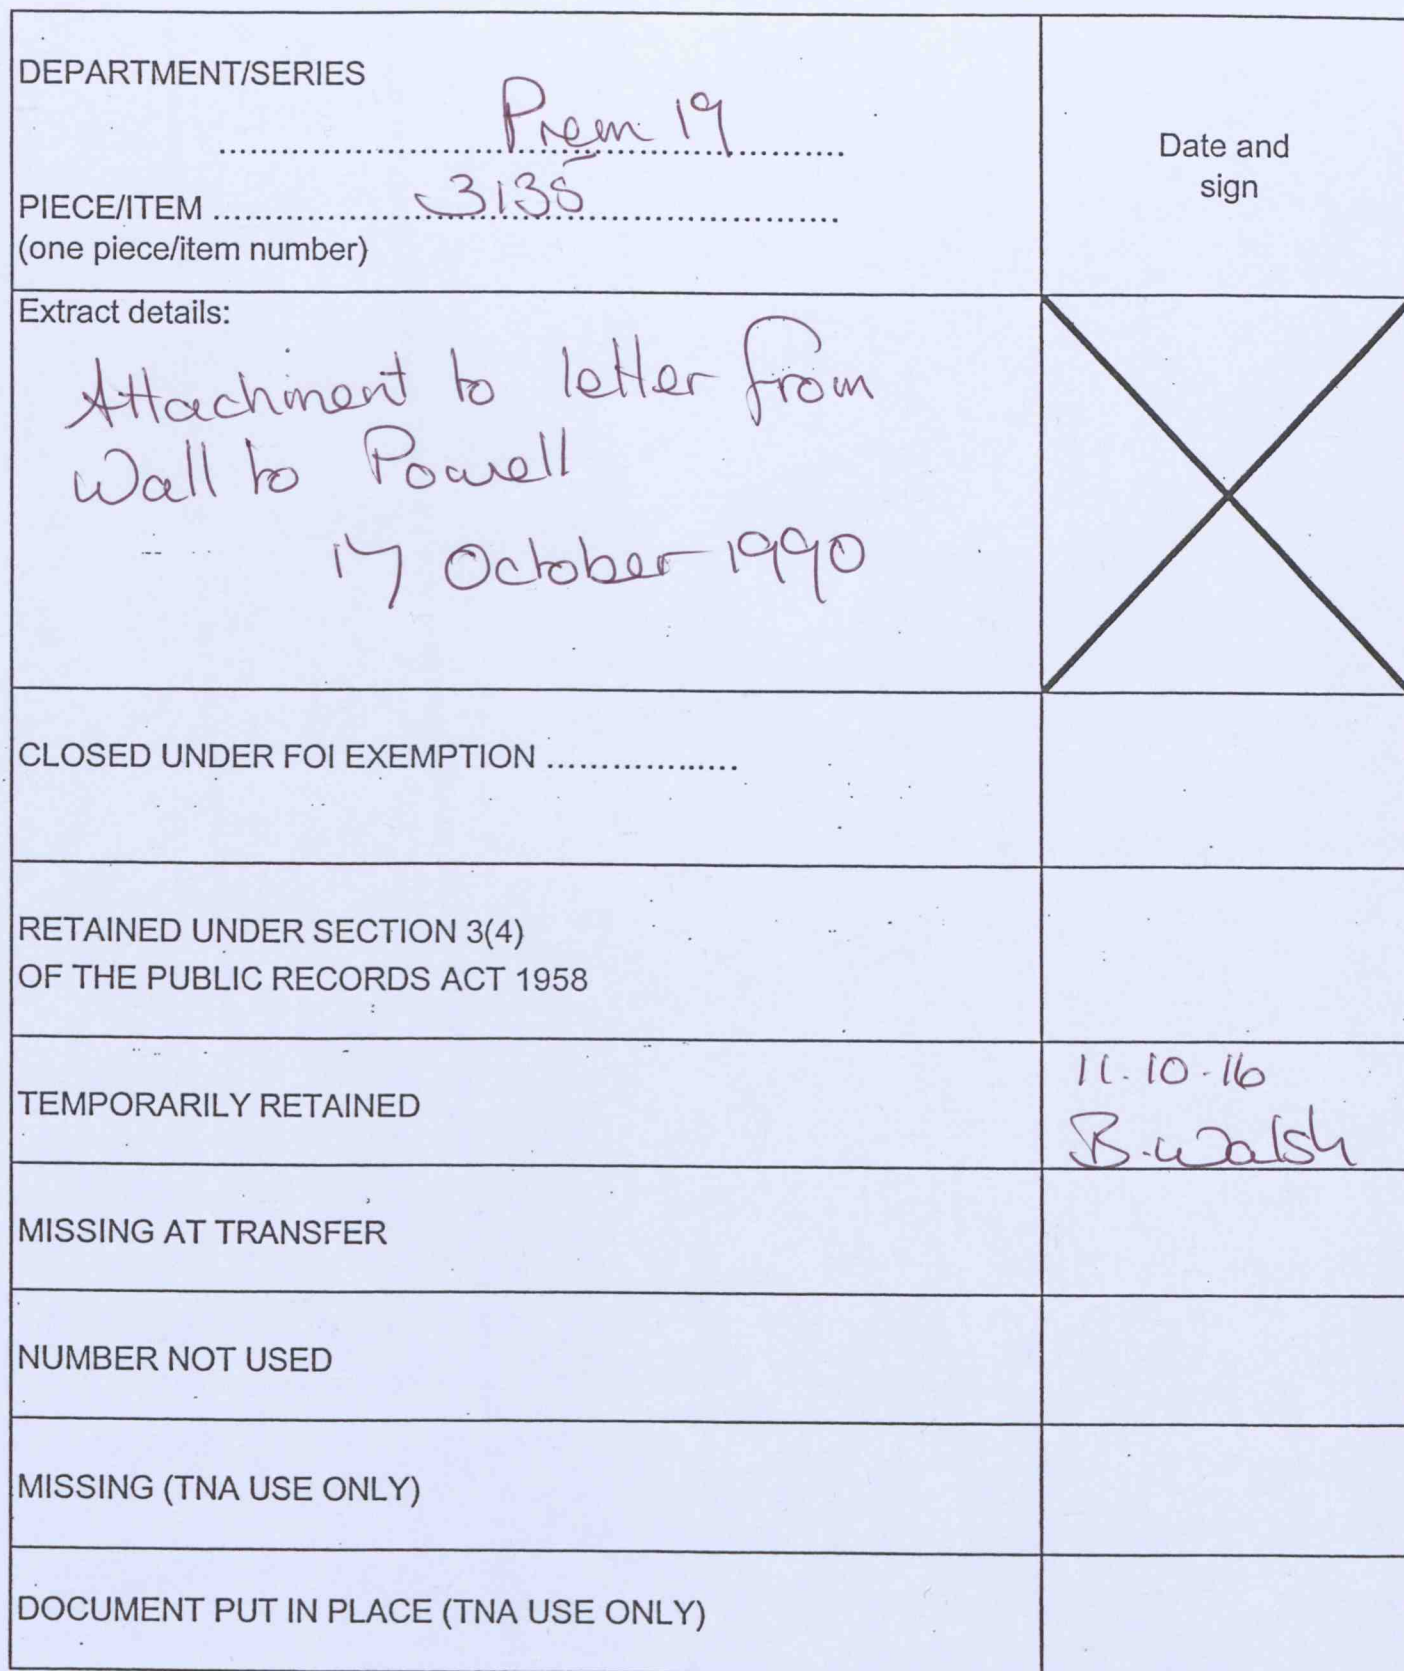 DEPARTMENT/SERIES
Prem 19
Date and
sign
PIECE/ITEM 3135
(one piece/item number)
Extract details:
Attachment to letter from
Wall to Powell
17 October 1990
CLOSED UNDER FOI EXEMPTION ..................
RETAINED UNDER SECTION 3(4)
OF THE PUBLIC RECORDS ACT 1958
TEMPORARILY RETAINED
11.10.16
B. Walsh
MISSING AT TRANSFER
NUMBER NOT USED
MISSING (TNA USE ONLY)
DOCUMENT PUT IN PLACE (TNA USE ONLY)